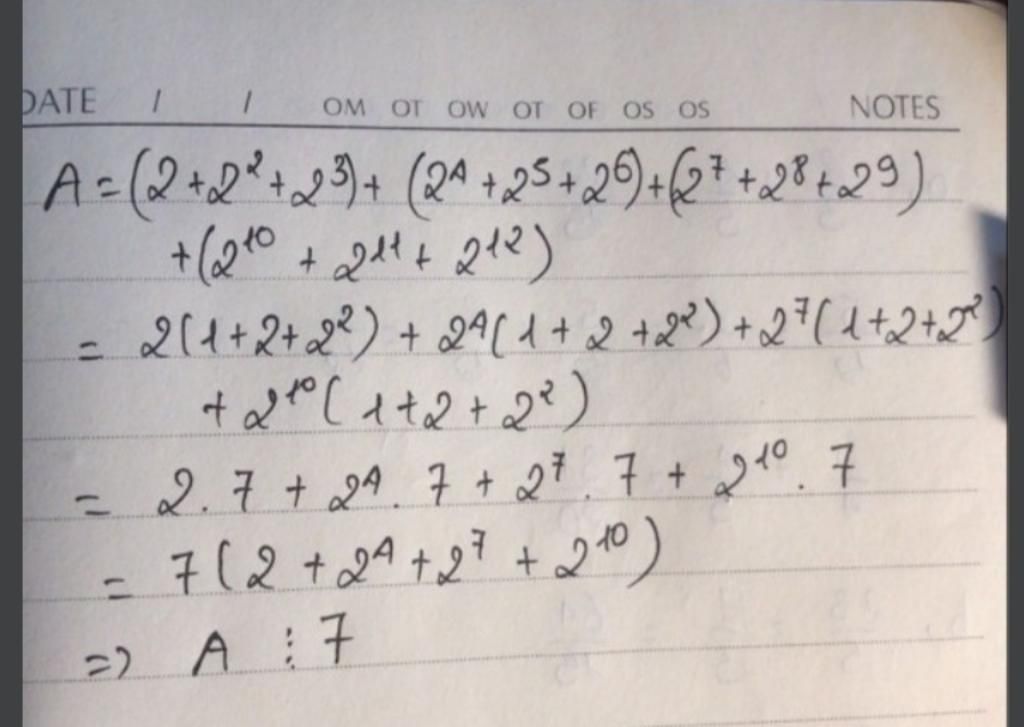 DATE / / OM OT OW OT OF OS OS NOTES
A = (2 + 2² + 2³) + (2⁴ + 2⁵ + 2⁶) + (2⁷ + 2⁸ + 2⁹)
+ (2¹⁰ + 2¹¹ + 2¹²)
= 2(1 + 2 + 2²) + 2⁴(1 + 2 + 2²) + 2⁷(1 + 2 + 2²)
+ 2¹⁰(1 + 2 + 2²)
= 2 . 7 + 2⁴ . 7 + 2⁷ . 7 + 2¹⁰ . 7
= 7(2 + 2⁴ + 2⁷ + 2¹⁰)
=> A ⋮ 7